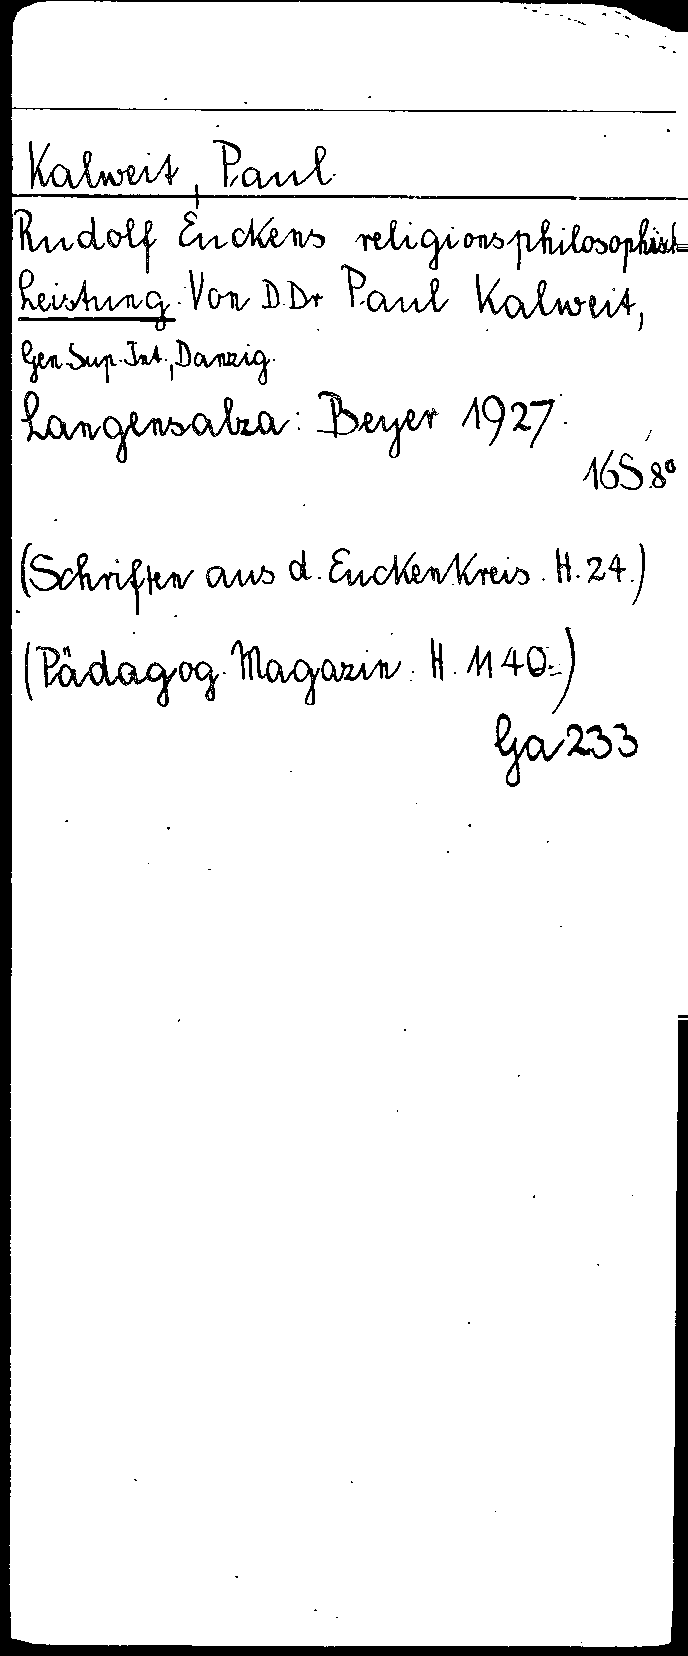 Kalweit, Paul
Rudolf Euckens religionsphilosophisch
Leistung. Von D. Dr Paul Kalweit,
Gen. Sup. Int., Danzig.
Langensalza: Beyer 1927.
16 S. 8°
(Schriften aus d. Euckenkreis. H. 24.)
(Pädagog. Magazin. H. 1140.)
Ga 233